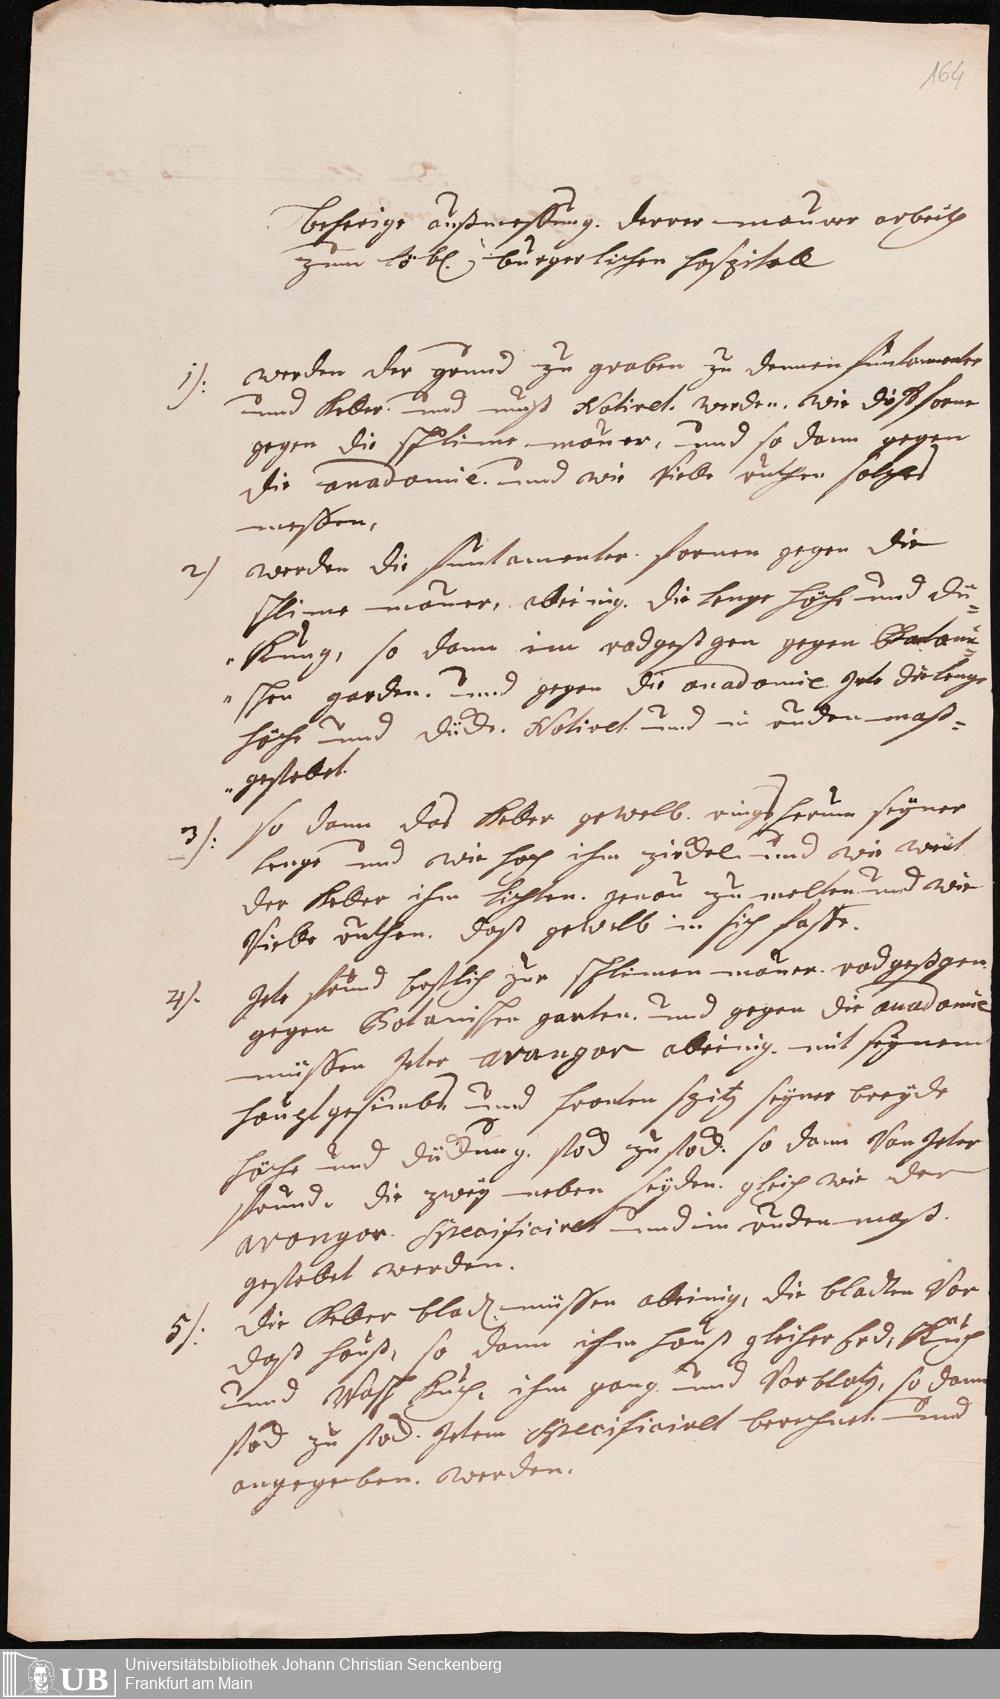 164
behörige außmessung. derrer maurer arbeith
zum löbl. bürgerlichen hospitall
1): werden der grund zu graben zu dennen funtamenter
und Keller. und muß Notiret. werden. wie dieff forne
gegen die schlimme mauer, und so dann gegen
die anadomie. und wie vielle ruthen solches
messen,
2) werden die funtamenter. fornen gegen die
schlimme mauer, alleinig. die lenge höhe und dü-
„ kung, so dann im radgeßgen gegen Bottani-
„ schen garden. und gegen die anadomie Jede die lenge
höhe und dücke. Notiret. und in ruden maß-
„ gestellet.
3): so dann das Keller gewelb. rings herum seyner
lenge und wie hoch ihm zirckel und wie weit
der Keller ihm lichten. genau zu melten und wie
vielle ruthen. daß gewelb in sich fasse.
4). Jete frund köstlich zur schlimmen mauer. radgeßgen.
gegen Botanischen garten. und gegen die anadomie
müssen Jeter avangor alleinig. mit seynem
hauptgesimbs und fronten spitz seyner breyde
höhe und dückung. stock zu stock. so dann von Jeter
frund. die zwey neben seyden. gleich wie der
avangor. Specificiret und in ruden maß.
gestellet werden.
5): die Keller bladt. müssen alleinig, die bladten vor
daß hauß, so dann ihm hauß gleicher Erd, Küch
und Wasch Küch, ihm gang und Vorblatz, so dann
stock zu stock. Jetem Specificiret berechnet und
angegeben. werden.
UB
Universitätsbibliothek Johann Christian Senckenberg
Frankfurt am Main